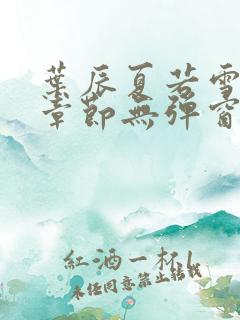 葉辰夏若雪
章節無彈窗
紅酒一杯
未經同意禁止轉載